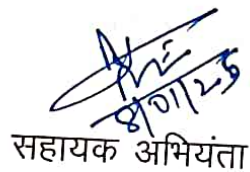 8/01/25
सहायक अभियंता